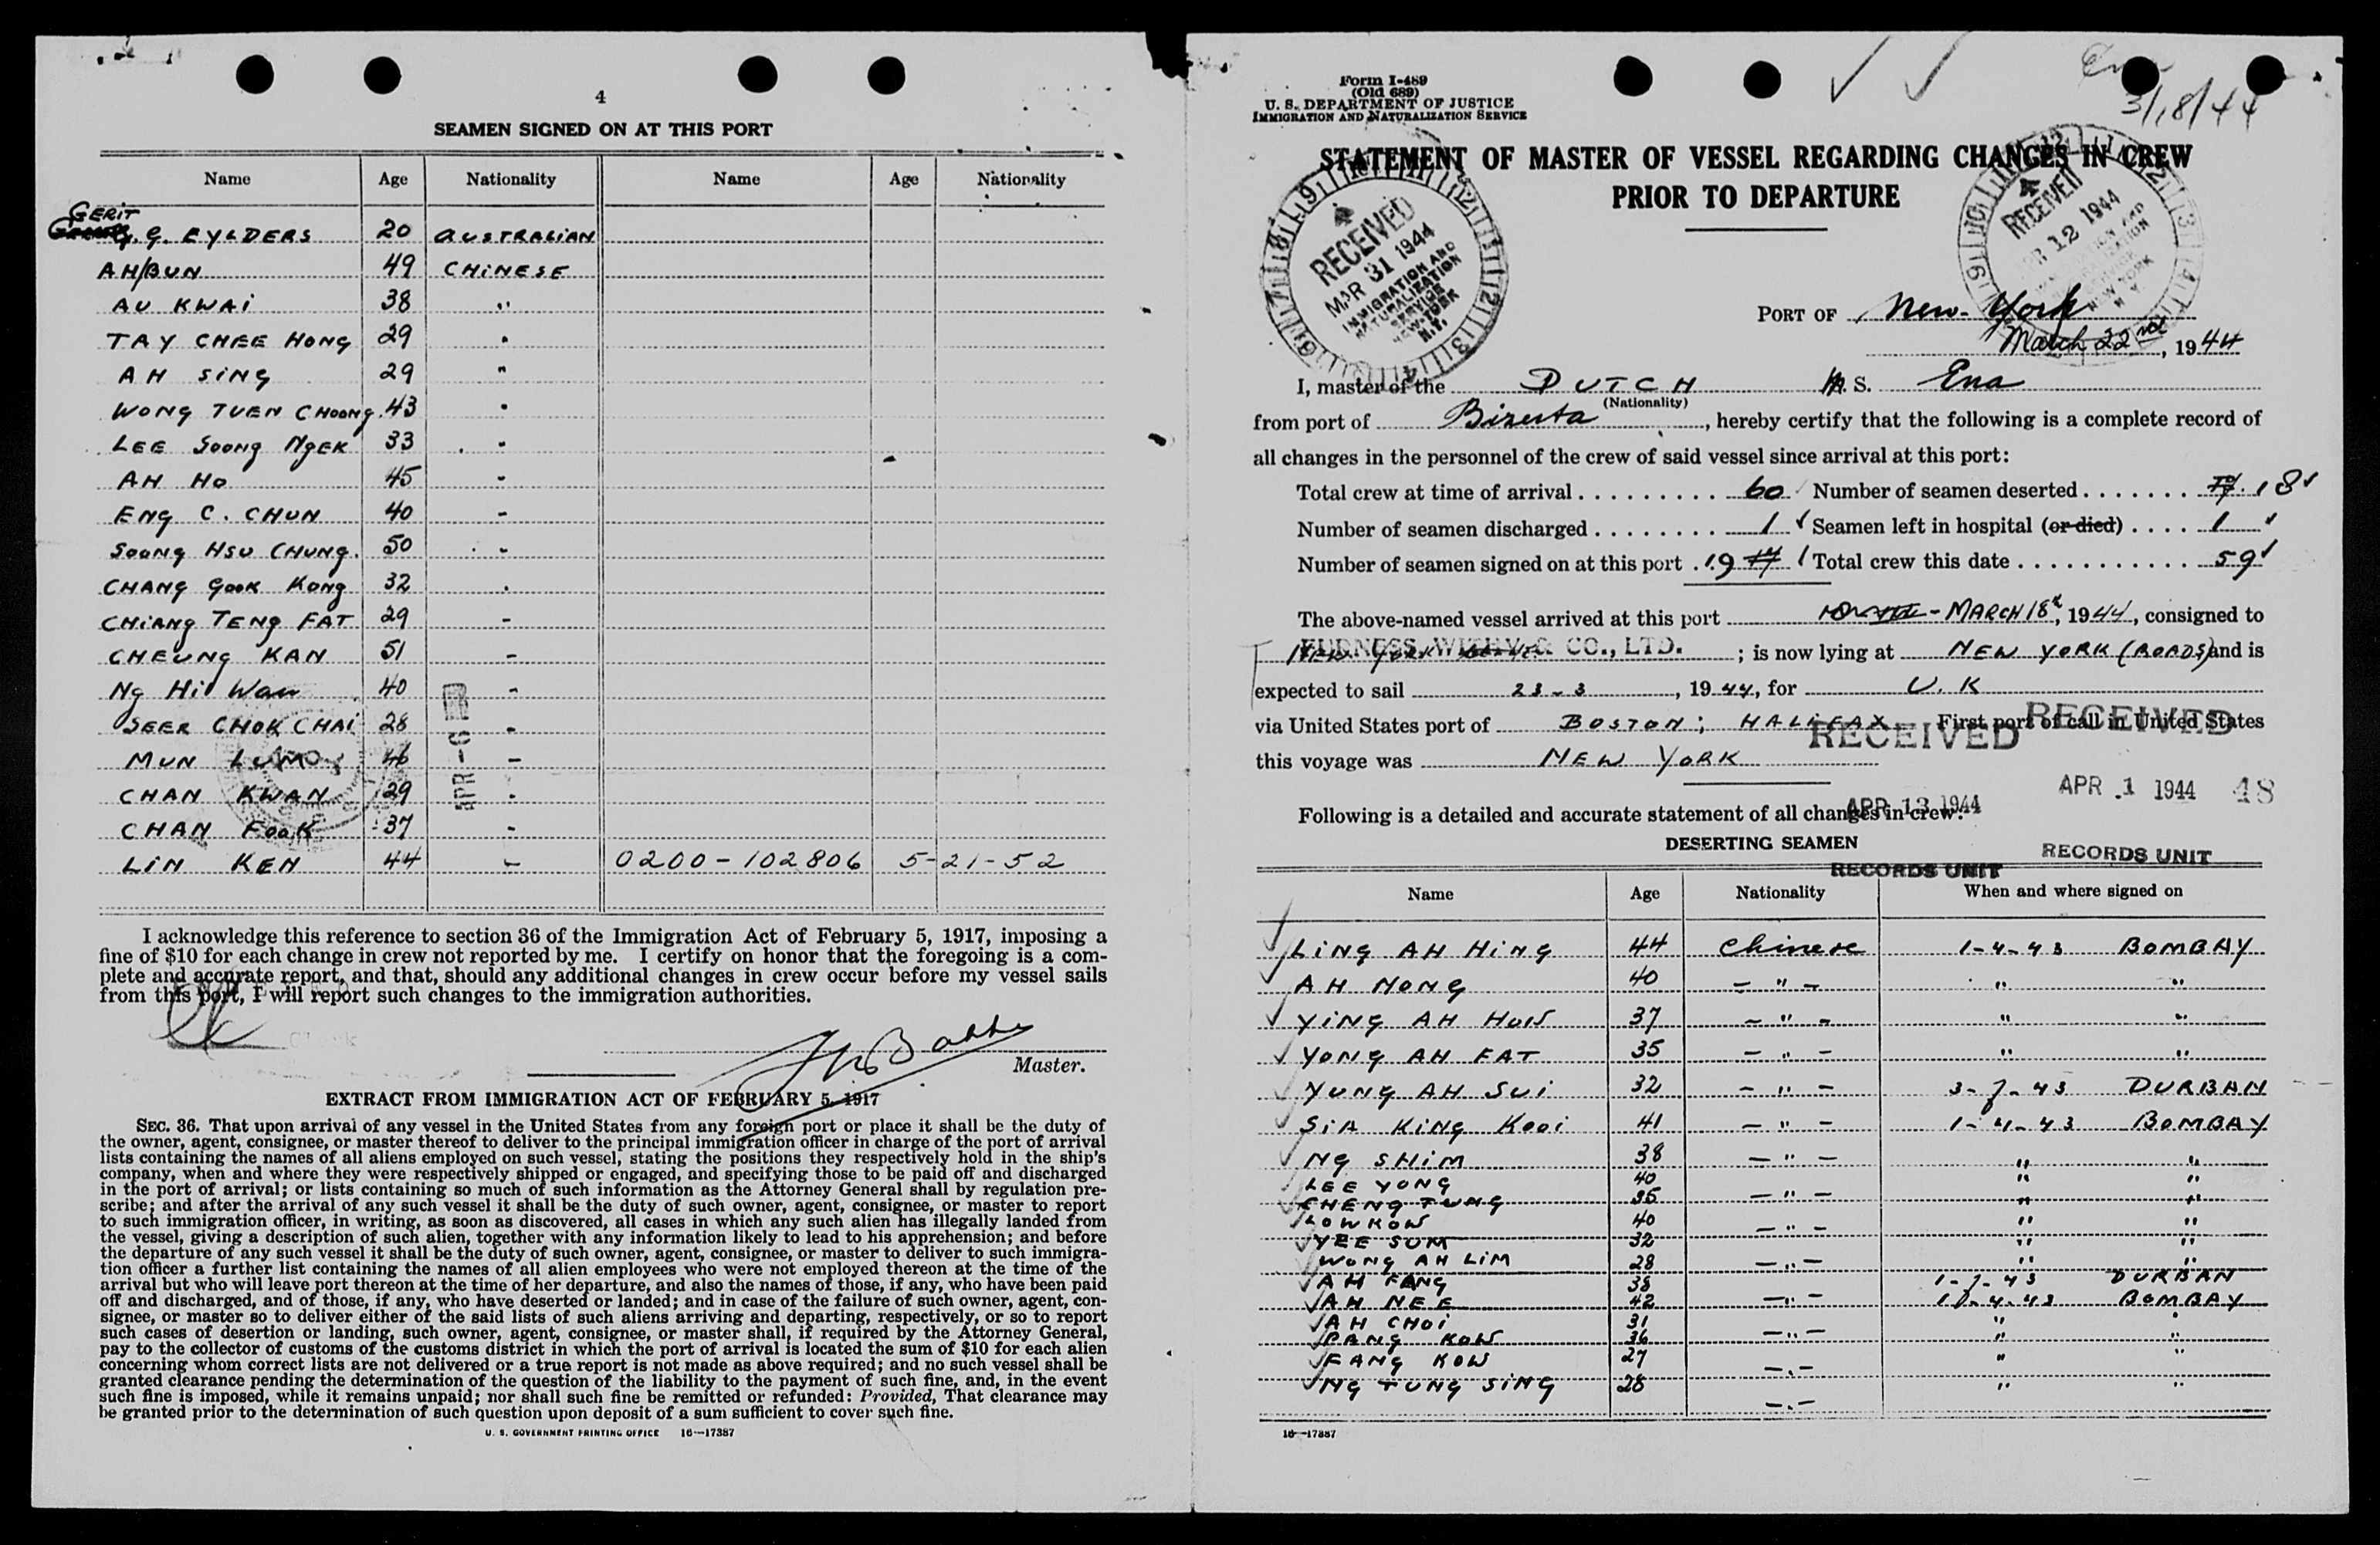 4
SEAMEN SIGNED ON AT THIS PORT
Name Age Nationality Name Age Nationality
GERIT
G. EYLDERS 20 AUSTRALIAN
AH/BUN 49 CHINESE
AU KWAI 38 "
TAY CHEE HONG 29 "
AH SING 29 "
WONG TUEN CHOONG 43 "
LEE SOONG NGEK 33 "
AH HO 45 "
ENG C. CHUN 40 "
SOONG HSU CHUNG. 50 "
CHANG GOOK KONG 32 "
CHIANG TENG FAT 29 "
CHEUNG KAN 51 "
NG HIO WAN 40 "
SEER CHOK CHAI 28 "
MUN LUM 46 "
CHAN KWAN 29 "
CHAN FOOK 37 "
LIN KEN 44 " 0200-102806 5-21-52
APR -6
I acknowledge this reference to section 36 of the Immigration Act of February 5, 1917, imposing a
fine of $10 for each change in crew not reported by me. I certify on honor that the foregoing is a com-
plete and accurate report, and that, should any additional changes in crew occur before my vessel sails
from this port, I will report such changes to the immigration authorities.
Master.
EXTRACT FROM IMMIGRATION ACT OF FEBRUARY 5, 1917
SEC. 36. That upon arrival of any vessel in the United States from any foreign port or place it shall be the duty of
the owner, agent, consignee, or master thereof to deliver to the principal immigration officer in charge of the port of arrival
lists containing the names of all aliens employed on such vessel, stating the positions they respectively hold in the ship's
company, when and where they were respectively shipped or engaged, and specifying those to be paid off and discharged
in the port of arrival; or lists containing so much of such information as the Attorney General shall by regulation pre-
scribe; and after the arrival of any such vessel it shall be the duty of such owner, agent, consignee, or master to report
to such immigration officer, in writing, as soon as discovered, all cases in which any such alien has illegally landed from
the vessel, giving a description of such alien, together with any information likely to lead to his apprehension; and before
the departure of any such vessel it shall be the duty of such owner, agent, consignee, or master to deliver to such immigra-
tion officer a further list containing the names of all alien employees who were not employed thereon at the time of the
arrival but who will leave port thereon at the time of her departure, and also the names of those, if any, who have been paid
off and discharged, and of those, if any, who have deserted or landed; and in case of the failure of such owner, agent, con-
signee, or master so to deliver either of the said lists of such aliens arriving and departing, respectively, or so to report
such cases of desertion or landing, such owner, agent, consignee, or master shall, if required by the Attorney General,
pay to the collector of customs of the customs district in which the port of arrival is located the sum of $10 for each alien
concerning whom correct lists are not delivered or a true report is not made as above required; and no such vessel shall be
granted clearance pending the determination of the question of the liability to the payment of such fine, and, in the event
such fine is imposed, while it remains unpaid; nor shall such fine be remitted or refunded: Provided, That clearance may
be granted prior to the determination of such question upon deposit of a sum sufficient to cover such fine.
U. S. GOVERNMENT PRINTING OFFICE 16—17387
Form I-489
(Old 689)
U. S. DEPARTMENT OF JUSTICE
IMMIGRATION AND NATURALIZATION SERVICE
Ena
3/18/44
STATEMENT OF MASTER OF VESSEL REGARDING CHANGES IN CREW
PRIOR TO DEPARTURE
RECEIVED
MAR 31 1944
IMMIGRATION AND
NATURALIZATION
SERVICE
NEW YORK
N.Y.
RECEIVED
12 1944
NEW YORK
N. Y.
PORT OF New-York
March 22nd, 1944
I, master of the DUTCH M. S. Ena
(Nationality)
from port of Bizerta, hereby certify that the following is a complete record of
all changes in the personnel of the crew of said vessel since arrival at this port:
Total crew at time of arrival 60 Number of seamen deserted 17 18
Number of seamen discharged 1 Seamen left in hospital (or died) 1
Number of seamen signed on at this port 19 Total crew this date 59
The above-named vessel arrived at this port MARCH 18th, 1944, consigned to
FURNESS, WITHY & CO., LTD. ; is now lying at NEW YORK (ROADS) and is
expected to sail 23-3, 1944, for U.K
via United States port of BOSTON; HALIFAX First port of call in United States
this voyage was NEW YORK
RECEIVED RECEIVED
APR 13 1944 APR 1 1944 48
Following is a detailed and accurate statement of all changes in crew:
DESERTING SEAMEN
RECORDS UNIT RECORDS UNIT
Name Age Nationality When and where signed on
LING AH HING 44 Chinese 1-4-43 BOMBAY
AH HONG 40 -"- " "
YING AH HOW 37 -"- " "
YONG AH FAT 35 -"- " "
YUNG AH SUI 32 -"- 3-7-43 DURBAN
SIA KING KOOI 41 -"- 1-4-43 BOMBAY
NG SHIM 38 -"- " "
LEE YONG 40 " "
CHENG TUNG 35 -"- " "
LOW KOW 40 " "
YEE SUM 32 -"- " "
WONG AH LIM 28 " "
AH FANG 38 -"- 1-7-43 DURBAN
AH NEE 42 -"- 1-4-43 BOMBAY
AH CHOI 31 " "
PANG KOW 36 -"- " "
FANG KOW 27 " "
NG TUNG SING 28 -"- " "
16—17387